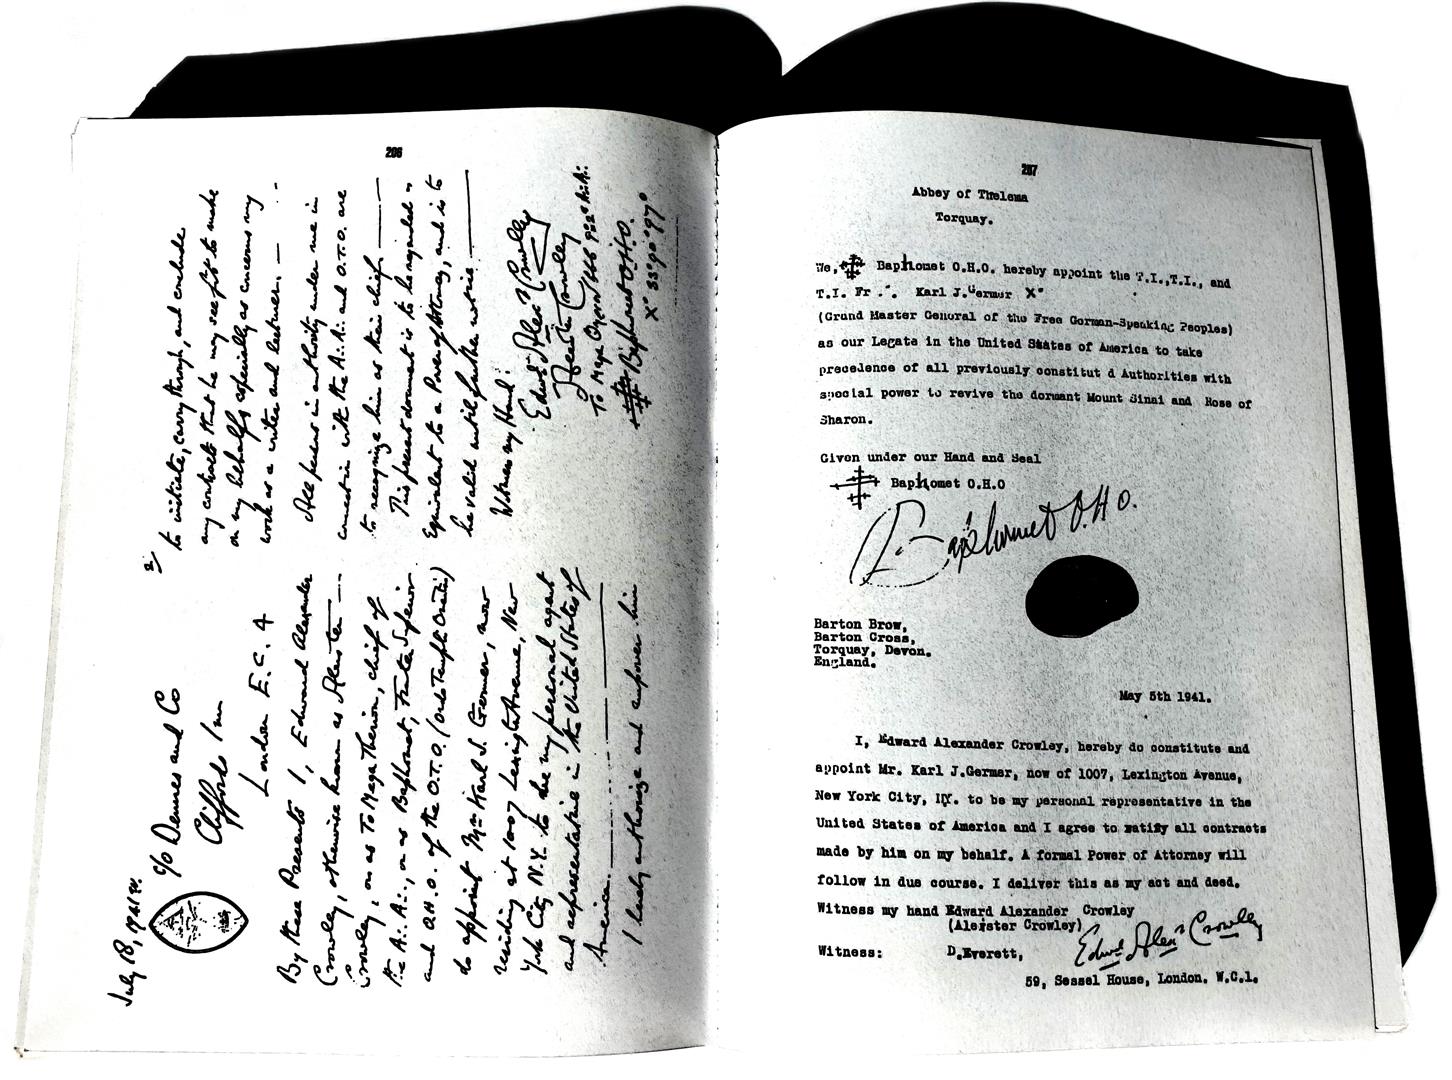 206
July 18, 1941 e.v.
c/o Dennes and Co
Cliffords Inn
London E.C. 4
By these Presents I, Edward Alexander
Crowley, otherwise known as Aleister
Crowley, or as To Mega Therion, chief of
the A∴A∴, or as Baphomet, Frater Superior
and O.H.O. of the O.T.O. (Ordo Templi Orientis)
do appoint Mr Karl J. Germer, now
residing at 1007 Lexington Avenue, New
York City N.Y. to be my personal agent
and representative in the United States of
America.
I hereby authorize and empower him
2/
to initiate, carry through, and conclude
any contracts that he may see fit to make
on my behalf especially as concerns my
work as a writer and lecturer. —
All persons in authority under me in
connection with the A∴A∴ and O.T.O. are
to recognize him as their chief.
This present document is to be regarded as
equivalent to a Power of Attorney, and is to
be valid until further notice.
Witness my Hand:
Edwd Alexr Crowley
Aleister Crowley
To Mega Therion 666 9°=2°
Baphomet O.H.O.
X° 33° 90° 97°
207
Abbey of Thelema
Torquay.
We, Baphomet O.H.O. hereby appoint the T.I.,T.I., and
T.I. Fr .'. Karl J.Germer X°
(Grand Master General of the Free German-Speaking Peoples)
as our Legate in the United States of America to take
precedence of all previously constitut d Authorities with
special power to revive the dormant Mount Sinai and Rose of
Sharon.
Given under our Hand and Seal
Baphomet O.H.O
Baphomet O.H.O.
Barton Brow,
Barton Cross,
Torquay, Devon.
England.
May 5th 1941.
I, Edward Alexander Crowley, hereby do constitute and
appoint Mr. Karl J.Germer, now of 1007, Lexington Avenue,
New York City, NY. to be my personal representative in the
United States of America and I agree to ratify all contracts
made by him on my behalf. A formal Power of Attorney will
follow in due course. I deliver this as my act and deed.
Witness my hand Edward Alexander Crowley
(Aleister Crowley)
Edwd Alexr Crowley
Witness: D.Everett,
59, Sessel House, London. W.C.1.